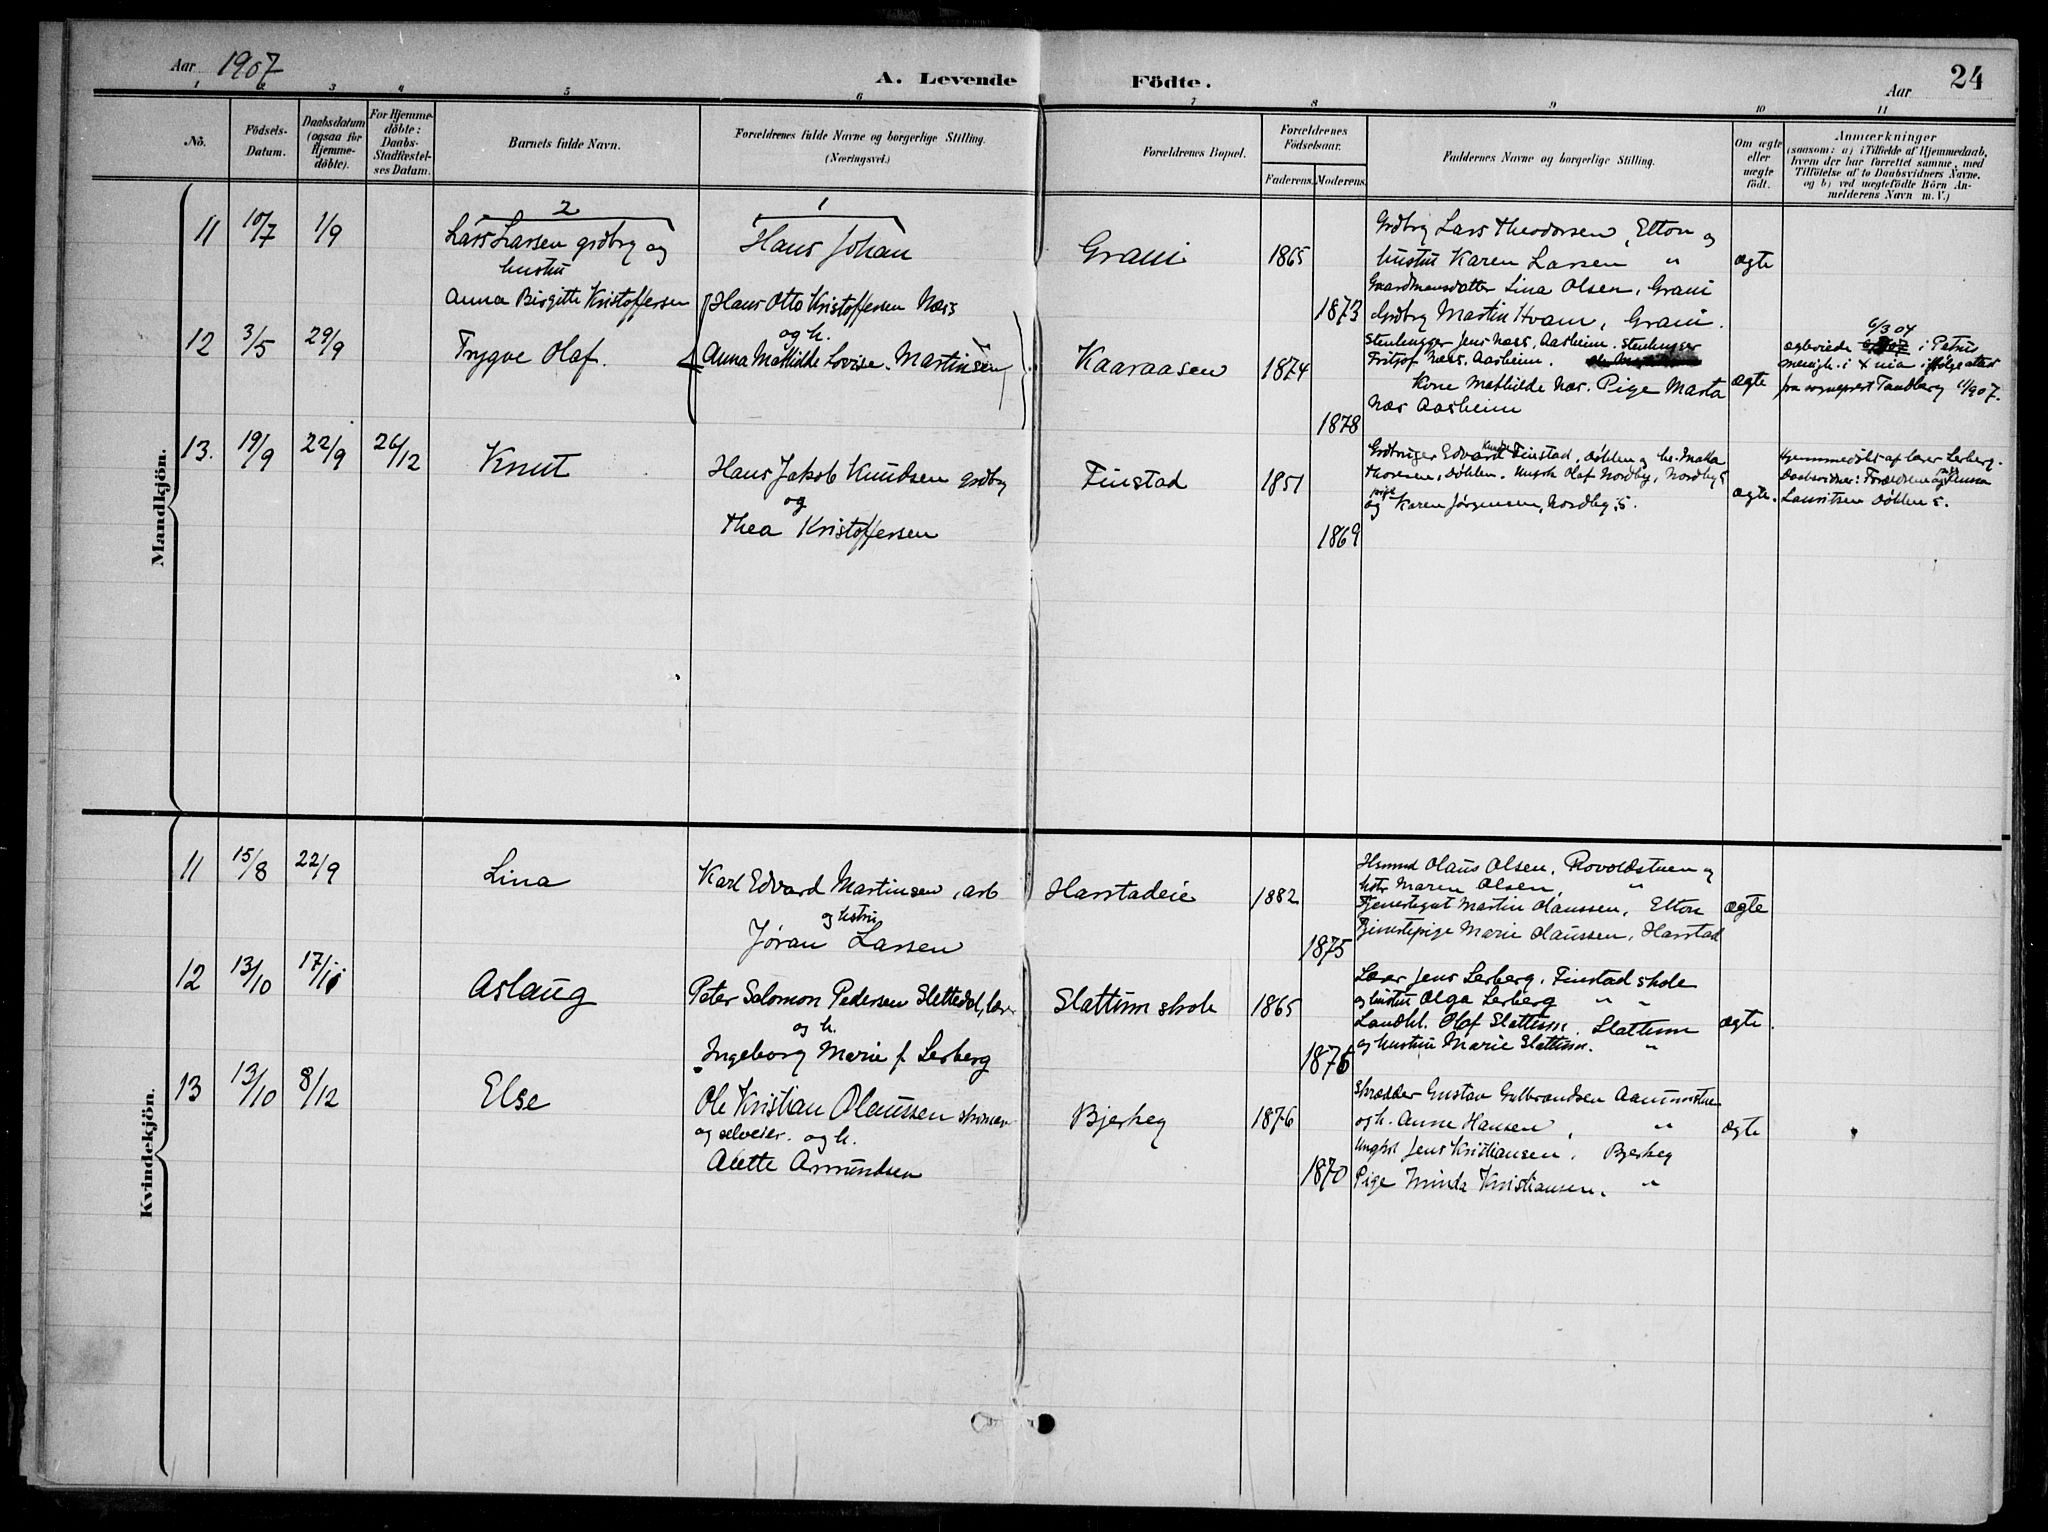 Aar 1907
A. Levende Födte.
Aar 24
1 2 3 4 5 6 7 8 9 10 11
No.
Födsels-
Datum.
Daabsdatum
(ogsaa for
Hjemme-
döbte).
For Hjemme-
döbte:
Daabs-
Stadfæstel-
ses Datum.
Barnets fulde Navn.
Forældrenes fulde Navne og borgerlige Stilling.
(Næringsvei.)
Forældrenes Bopæl.
Forældrenes
Födselsaar.
Faderens. Moderens.
Faddernes Navne og borgerlige Stilling.
Om ægte
eller
uægte
født.
Anmærkninger
(saasom: a) i Tilfælde af Hjemmedaab,
hvem der har forrettet samme, med
Tilföielse af to Daabsvidners Navne.
og b) ved uægtefödte Börn An-
melderens Navn m. V.)
Mandkjön.
2
1
11 10/7 1/9
Lars Larsen grdbr og
hustru
Anna Birgitte Kristoffersen
Hans Johan
Grani
1865
1873
Grdbr Lars Theodorsen, Elton og
hustru Karen Larsen "
Gaardmansdatter Lina Olsen, Grani
Grdbr Martin Hvam, Grani.
ægte
12 3/5 29/9
Trygve Olaf.
Hans Otto Kristoffersen Næss
og h.
Anna Mathilde Lovise Martinsen
Kaaraasen
1874
1878
Stenhugger Jens Næss, Aasheim. Stenhugger
Fritjof Næss, Aasheim.
Kone Mathilde Næs. Pige Marta
Næs Aasheim
ægte
6/3 04
ægteviede i Petrus
menigh. i Xnia ifølge attest
fra sogneprest Tandberg 11/9 07.
13. 19/9 22/9 26/12
Knut
Hans Jakob Knudsen grdbr
og
Thea Kristoffersen
Finstad
1851
1869
Grdbruger Edvard Finstad, Døhlen og h. Matta
Thoresen, Døhlen. Ungk Olaf Nordby, Nordby S
pige
og Karen Jørgensen, Nordby, S.
ægte.
Hjemmedøbt af lærer Lerberg.
Daabsvidner: Forældrene og Anna
Lauritsen Døhlen S.
Kvindekjön.
11 15/8 22/9
Lina
Karl Edvard Martinsen, arb
og hstru
Jøran Larsen
Harstadeie
1882
1875
Hsmnd Olaus Olsen, Rovoldstuen og
hstr Maren Olsen, "
Tjenestegut Martin Olaussen, Elton
Tjenestepige Marie Olaussen, Harstad
ægte
12 13/10 17/11
Aslaug
Peter Salomon Pedersen Slettedal, lærer
og h.
Ingeborg Marie f. Lerberg
Slattum skole
1865
1876
Lærer Jens Lerberg, Finstad skole
og hustru Olga Lerberg " "
Landhl. Olaf Slattum, Slattum
og hustru Marie Slattum. "
ægte.
13 13/10 8/12
Else
Ole Kristian Olaussen skomaker
og selveier. og h.
Alette Amundsen
Bjerkey
1876
1870
Skrædder Gustav Gulbrandsen
og h. Anne Hansen, "
Ungkl Jens Kristiansen, Bjerkey
Pige Minda Kristiansen, "
ægte